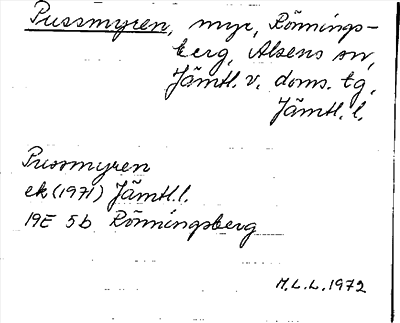 Pussmyren, myr, Rönnings-
berg, Alsens sn,
Jämtl. v. doms. tg,
Jämtl. l.
Pussmyren
ek (1971) Jämtl. l.
19E 5b Rönningsberg
H.L.L. 1972